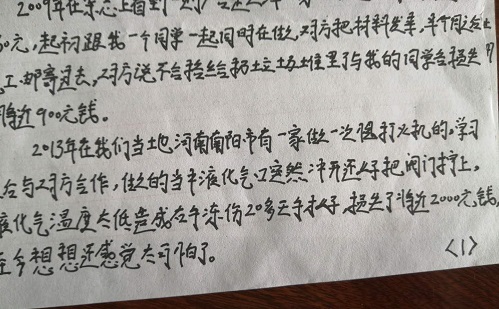 2009年在杂志上看到
30元,起初跟我一个同学一起同时在做,对方把材料发来,半个月左右
工邮寄过去,对方说不合格给扔
与我的同学合损失
将近900元钱。
2013年在我们当地河南南阳市有一家做一次性打火机的。学习
后与对方合作,做之的当中液化气口突然冲开还好把阀门拧上,
液化气温度太低造成右手冻伤20多天才好,损失了将近2000元钱,
至今想想还感觉太可怕了。
<1>